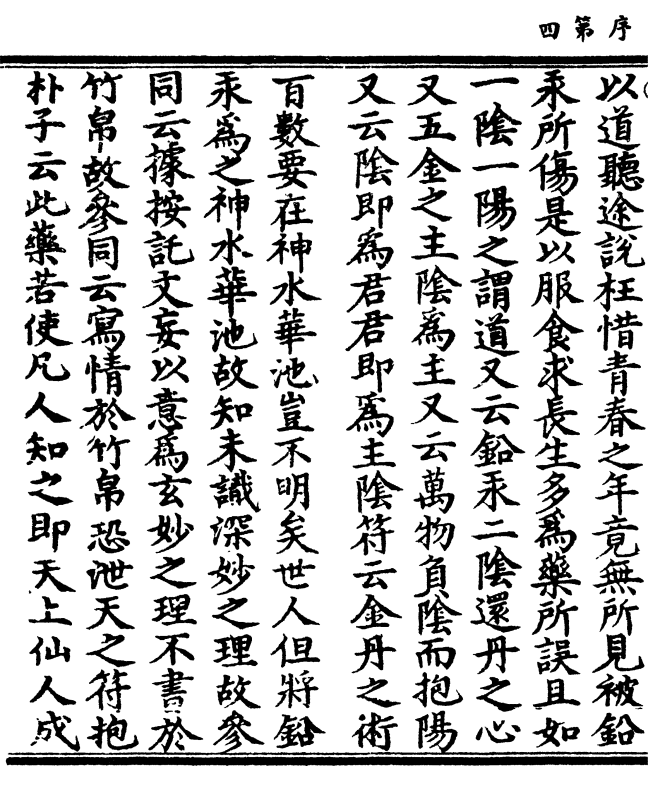 序第四
以道聽途說枉惜青春之年竟無所見被鉛
汞所傷是以服食求長生多爲藥所誤且如
一陰一陽之謂道又云鉛汞二陰還丹之心
又五金之主陰爲主又云萬物負陰而抱陽
又云陰即爲君君即爲主陰符云金丹之術
百數要在神水華池豈不明矣世人但將鉛
汞爲之神水華池故知未識深妙之理故參
同云據按託文妄以意爲玄妙之理不書於
竹帛故參同云寫情於竹帛恐泄天之符抱
朴子云此藥若使凡人知之即天上仙人成